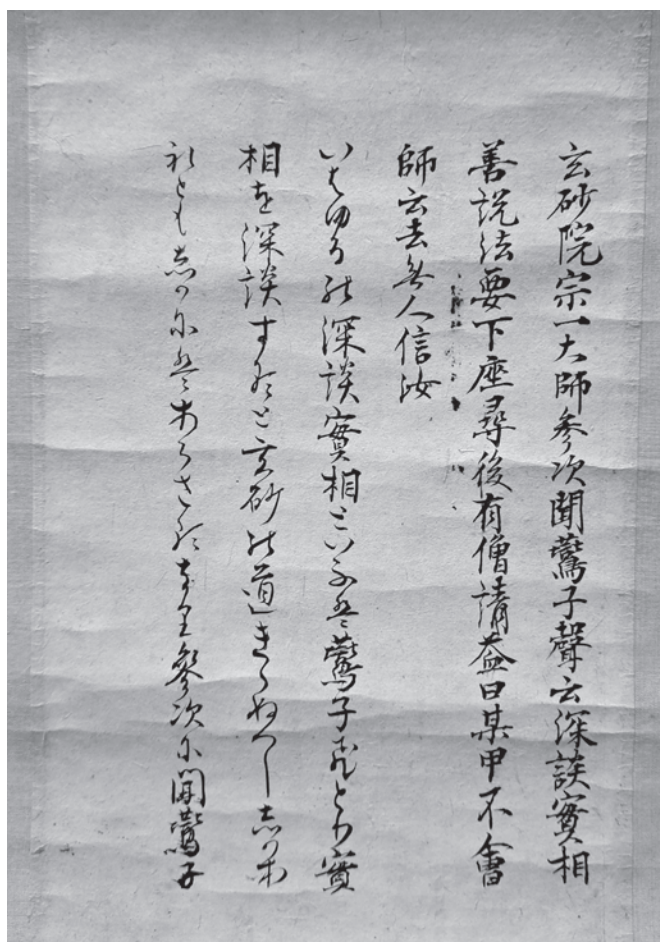 玄砂院宗一大師參次聞鷰子聲云深談實相
善説法要下座尋後有僧請益曰某甲不會
師云去無人信汝
いはゆるの深談實相といふは鷰子ひとり實
相を深談すると玄砂の道きゝぬへししかあ
れともしかにはあらさるなり參次に聞鷰子